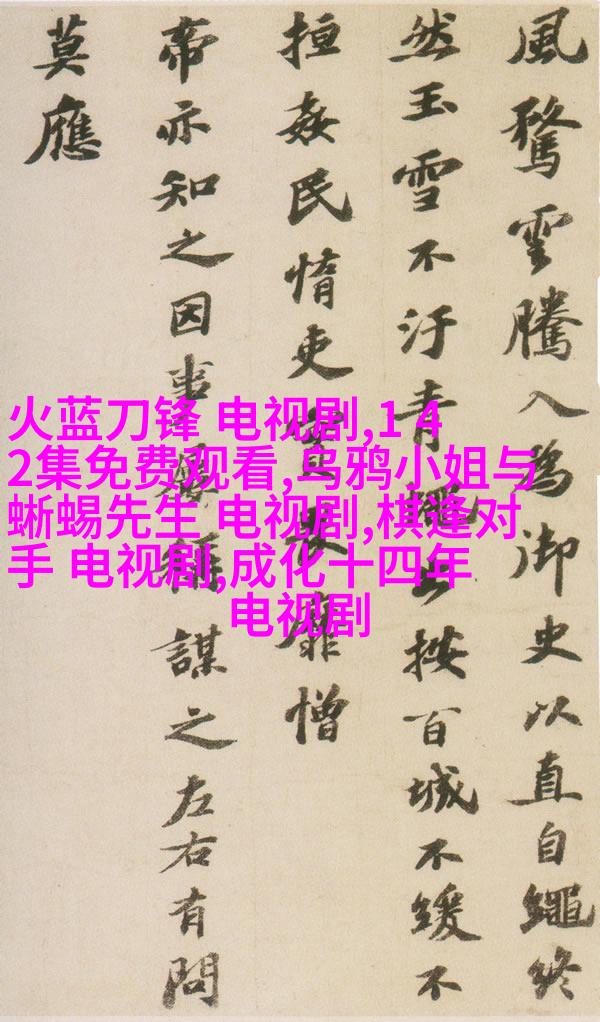 風騖雲騰入為御史以直自繩終
然玉雪不汙青蠅按百城不緩不
搄姦民惰吏實畏靡憎
帝亦知之因事屢稱謀之左右有問
莫應
火蓝刀锋 电视剧,1 4
2集免费观看,乌鸦小姐与
蜥蜴先生 电视剧,棋逢对
手 电视剧,成化十四年
电视剧